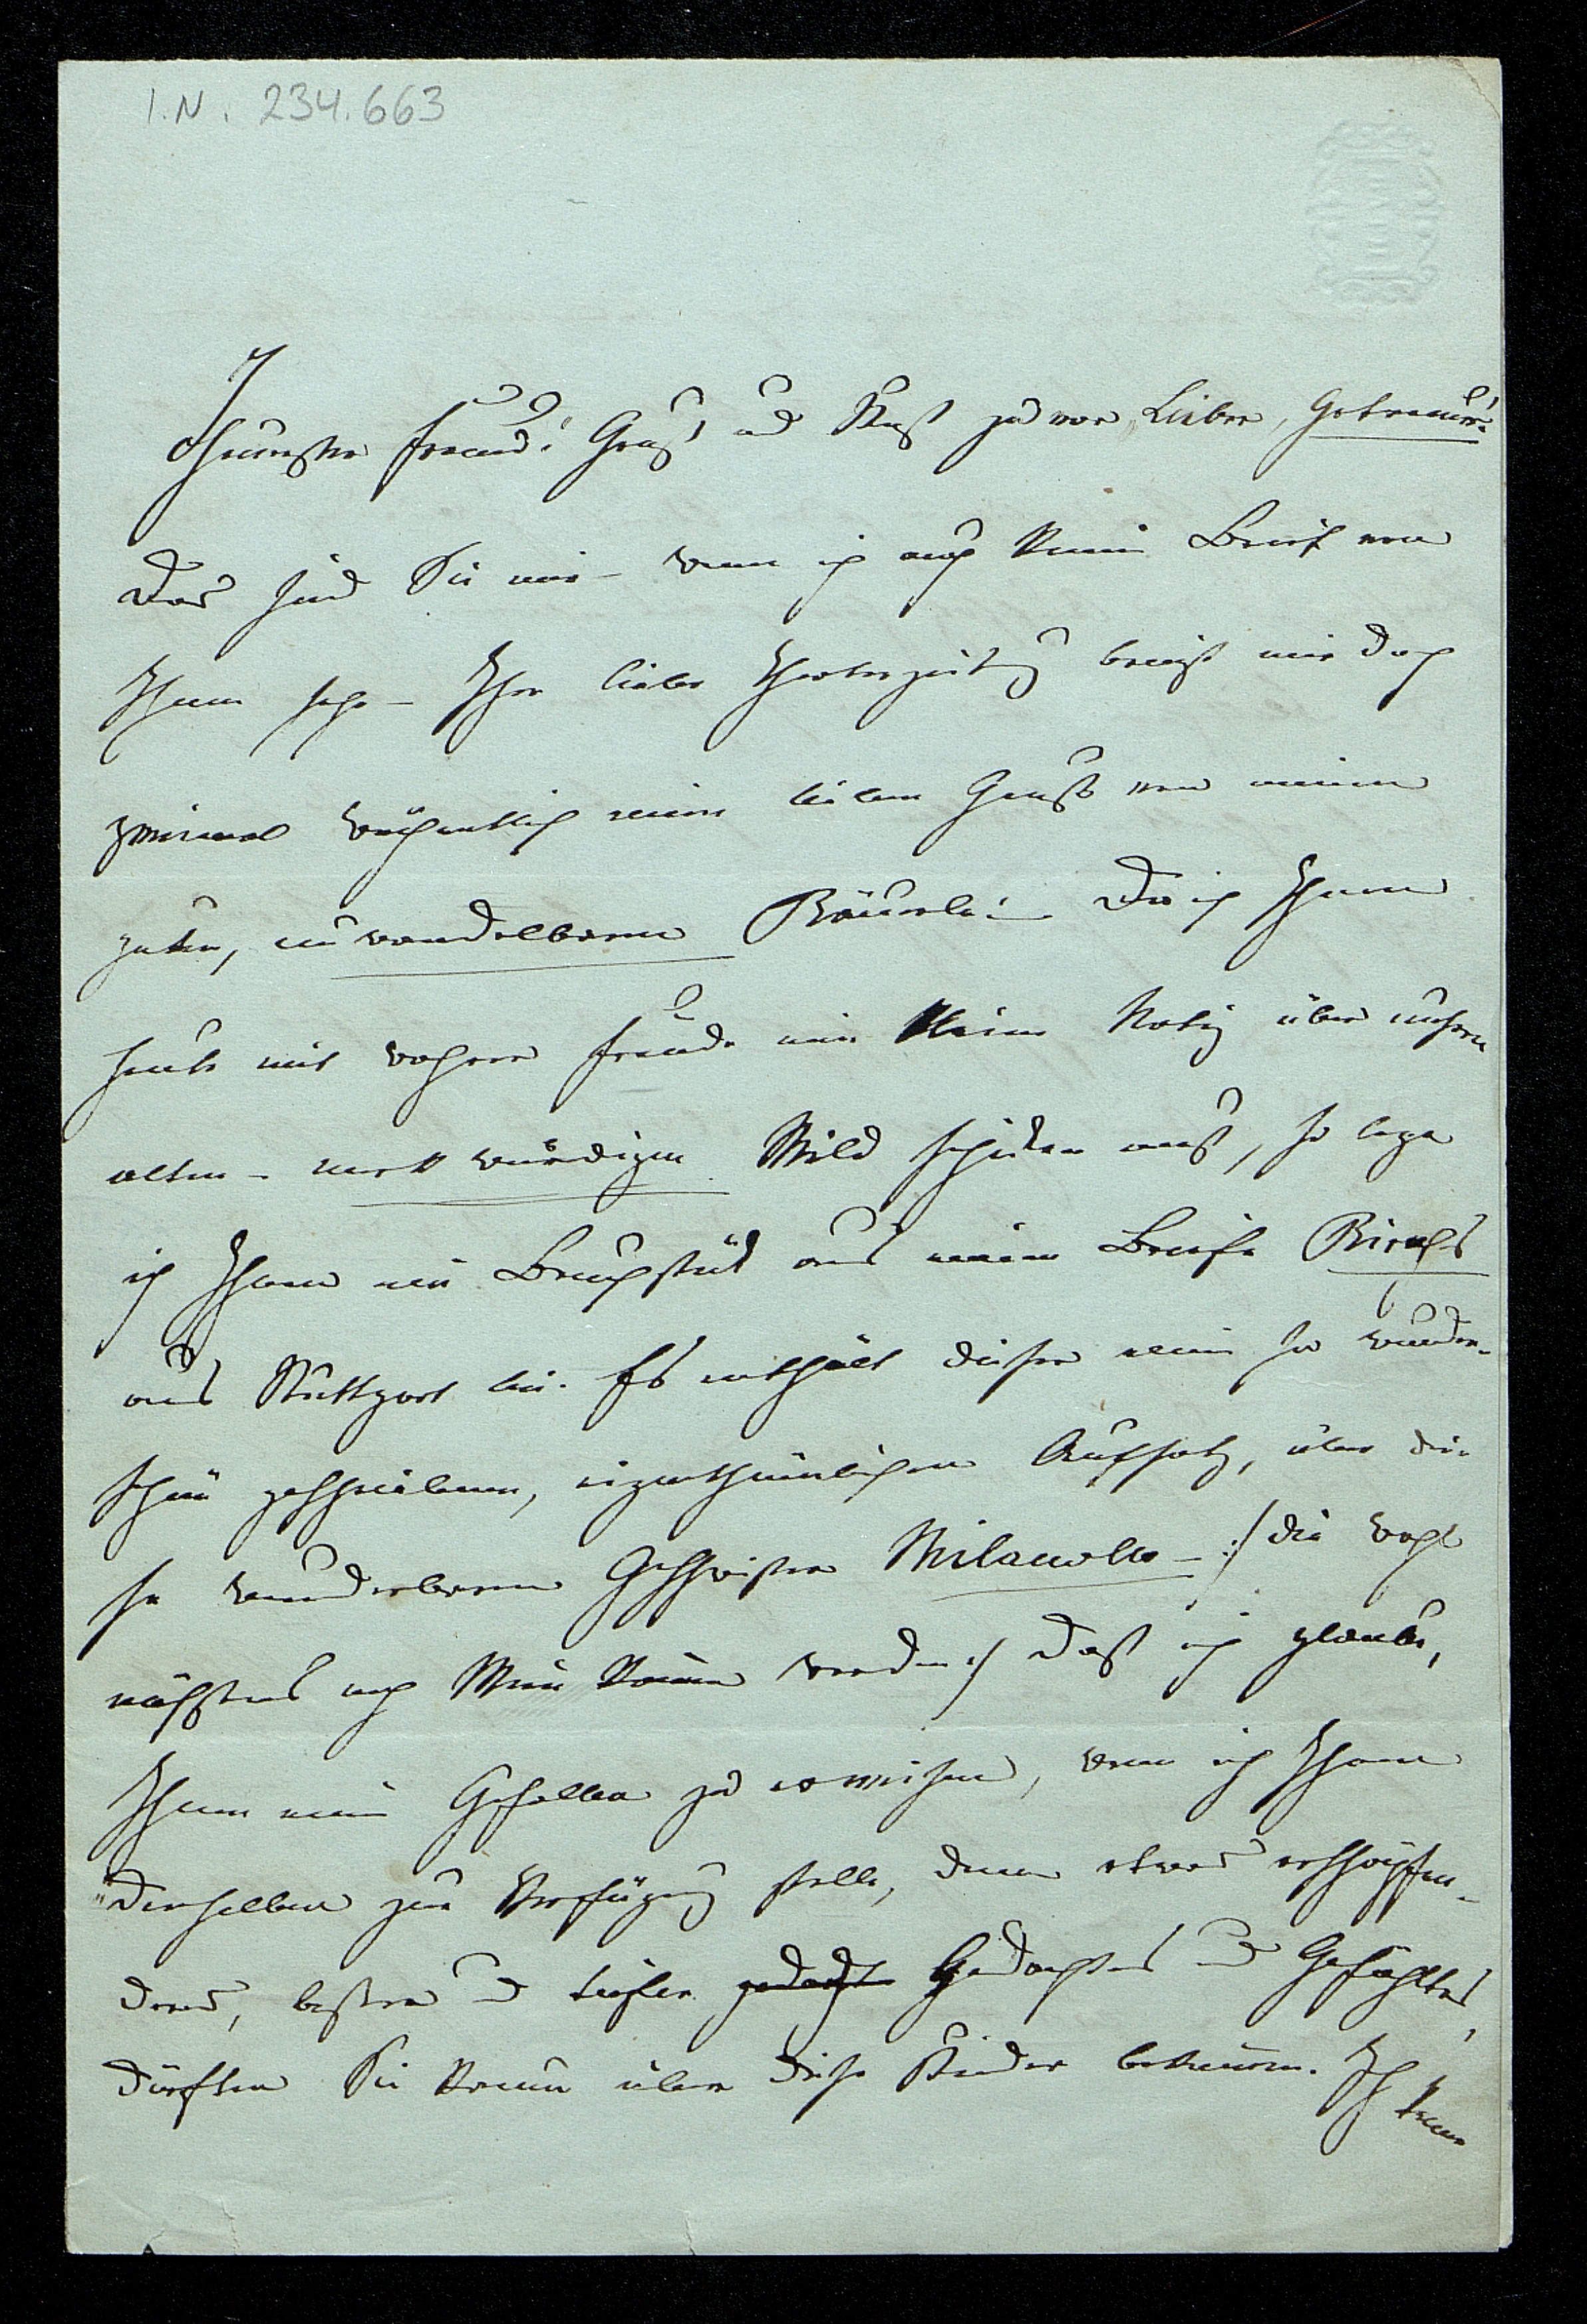 I.N. 234.663
Theurster Freund! Gruß und Kuß zuvor, „Lieber, Getreuer!
Das sind Sie mir – wenn ich auch keinen Brief von
Ihnen sehe – Ihre liebe Theaterzeitung bringt mir doch
zweimal wöchentlich einen lieben Gruß von meinem
guten, unwandelbaren Bäuerle! – Da ich Ihnen
heute mit wahrer Freude eine kleine Notiz über unsern
alten – merkwürdigen Wild schicken muß, so lege
ich Ihnen ein Bruchstück aus einem Briefe Birchs
aus Stuttgart bei. Es enthält dieser einen so wunder-
schön geschriebenen, eigenthümlichen Aufsatz, über die
so wunderbaren Geschwister Milanollo – :/ die wohl
nächstens nach Wien kommen werden :/ daß ich glaube,
Ihnen einen Gefallen zu erweisen, wenn ich Ihnen
denselben zur Verfügung stelle, denn etwas erschöpfen-
deres, besser und tiefer gedacht Gedachtes und Gefühltes,
dürften Sie kaum über diese Kinder bekommen. Ich kenne